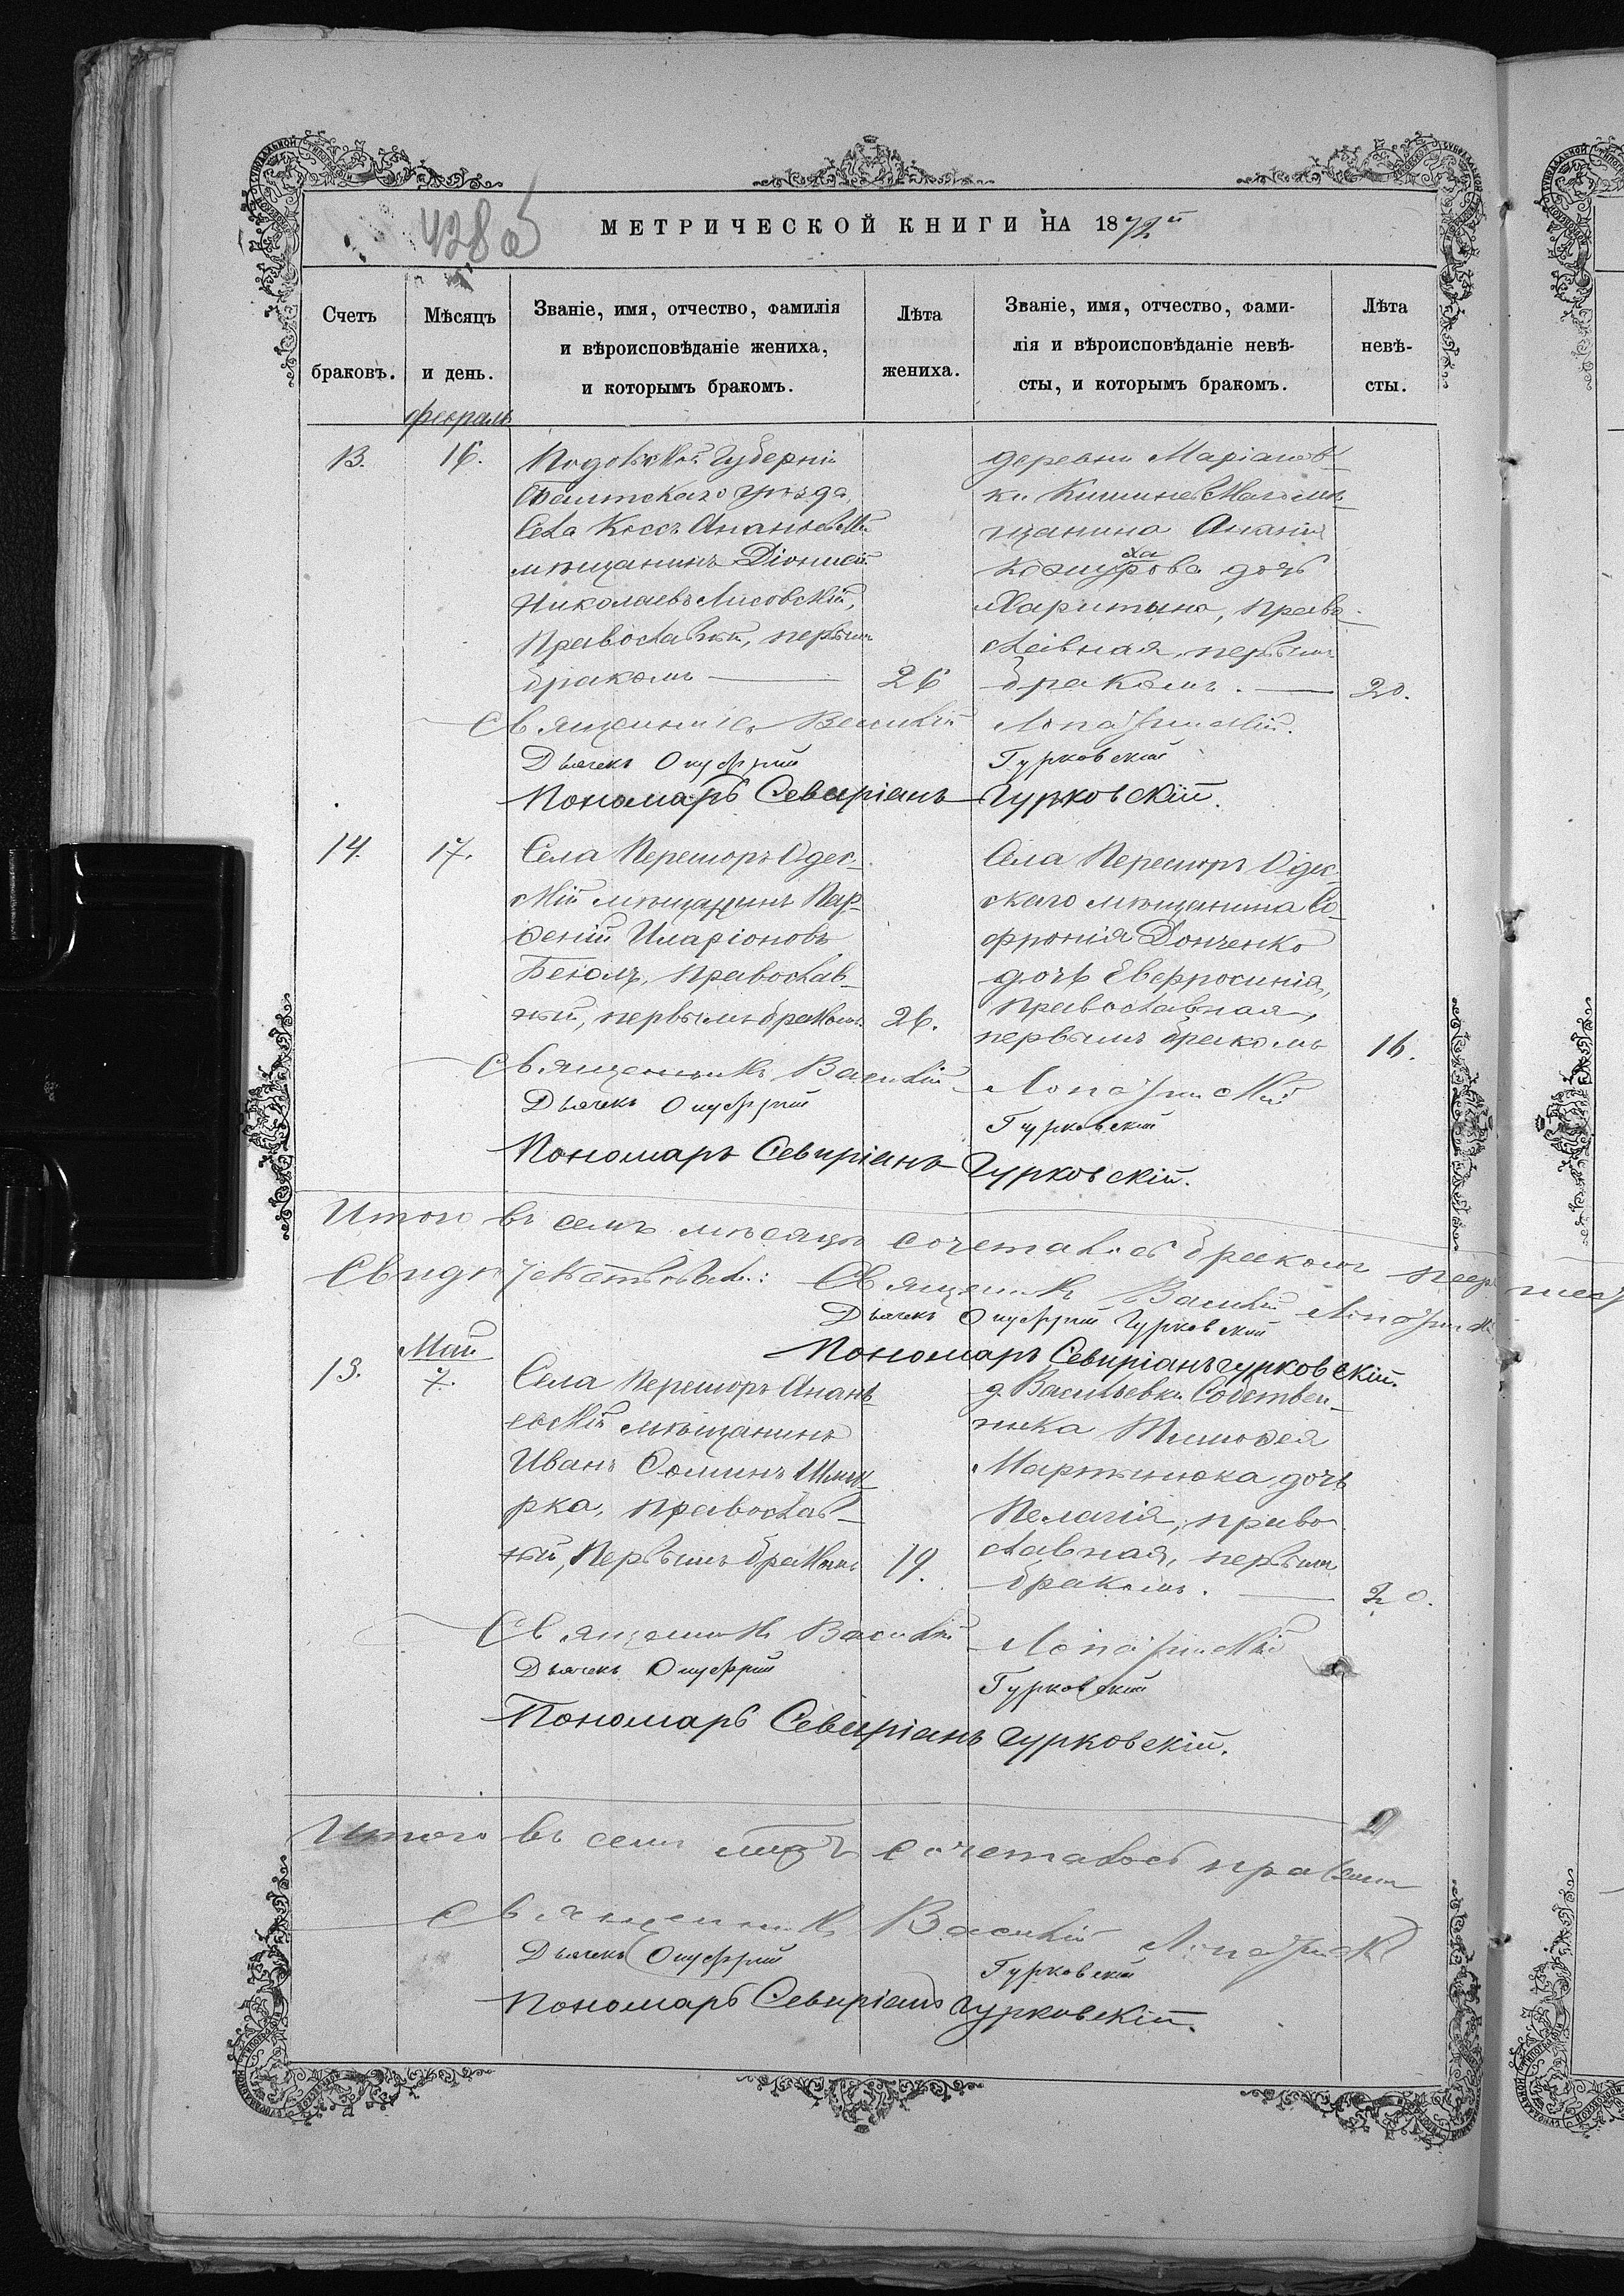 428 об
МЕТРИЧЕСКОЙ КНИГИ НА 1872й
Счетъ браковъ.
Мѣсяцъ и день.
Званіе, имя, отчество, фамилія
и вѣроисповѣданіе жениха,
и которымъ бракомъ.
Лѣта жениха.
Званіе, имя, отчество, фами-
лія и вѣроисповѣданіе невѣ-
сты, и которымъ бракомъ.
Лѣта невѣ-
сты.
февраль
13. 16.
Подольской Губерніи
Балтскаго уѣзда,
Села Коссъ Ананьевскій
мѣщанинъ Діонисій
Николаевъ Лисовскій,
Православный, первымъ
бракомъ 26
деревни Маріанов-
ки Кишиневскаго мѣ-
щанина Ананія
дочь
Харитина, право-
славная, первымъ
бракомъ. 20.
Священникъ Василій
Дьячекъ Онуфрій Гурковскій
Пономарь Севиріанъ Гурковскій.
14. 17.
Села Перешоръ Одес-
скій мѣщанинъ Пар-
ѳеній Иларіоновъ
православ-
ный, первымъ бракомъ. 26.
Села Перешоръ Одес-
скаго мѣщанина Со-
фронія Донченко
дочь Евфросинія,
православная,
первымъ бракомъ 16.
Священникъ Василій
Дьячекъ Онуфрій Гурковскій
Пономарь Севиріанъ Гурковскій.
Итого въ семъ мѣсяцѣ сочеталось бракомъ
Свидѣтельствовали: Священникъ Василій
Дьячекъ Онуфрій Гурковскій
Пономарь Севиріанъ Гурковскій.
Май
15. 7.
Села Перешоръ Анань-
евскій мѣщанинъ
Иванъ Ѳоминъ
православ-
ный, Первымъ бракомъ 19.
д. Васильевки Собствен-
ника Тимоѳея
Мартынюка дочь
Пелагія, право-
славная, первымъ
бракомъ. 20.
Священникъ Василій
Дьячекъ Онуфрій Гурковскій
Пономарь Севиріанъ Гурковскій.
Итого въ семъ сочеталось
Священникъ Василій
Дьячекъ Онуфрій Гурковскій
Пономарь Севиріанъ Гурковскій.